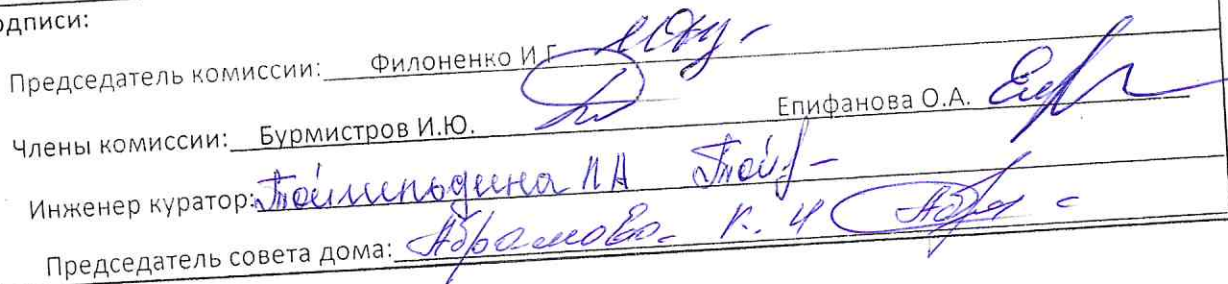 одписи:
Председатель комиссии: Филоненко И.Г.
Члены комиссии: Бурмистров И.Ю. Епифанова О.А.
Инженер куратор:
Председатель совета дома: Абрамова К. И